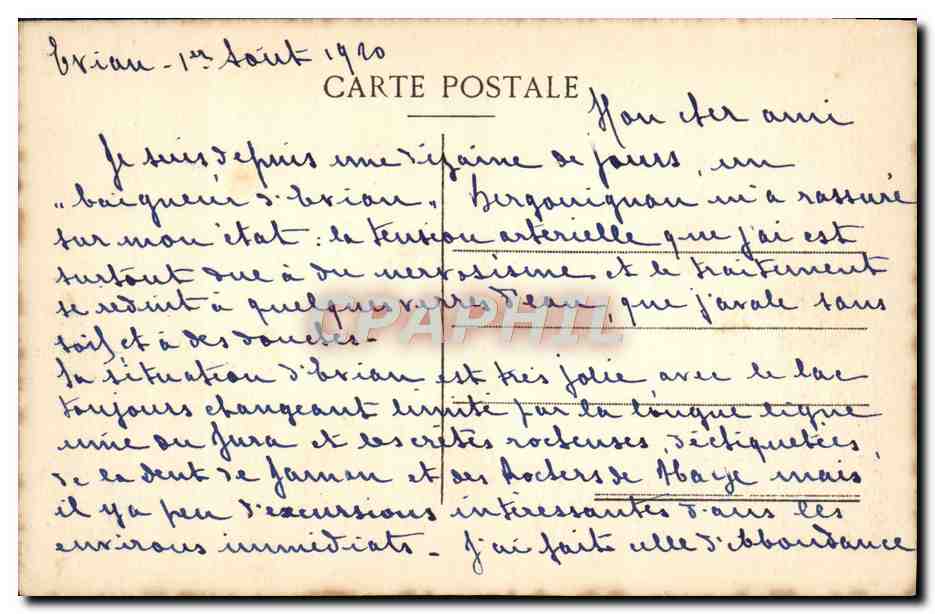 Evian - 1er Août 1920
CARTE POSTALE
Mon cher ami
Je suis depuis une dizaine de jours, un
"baigneur d'Evian". Bergouignan m'a rassuré
sur mon état : la tension artérielle que j'ai est
surtout due à du nervosisme et le traitement
se réduit à quelques verres d'eau, que j'avale sans
soif, et à des douches -
CPAPHIL
La situation d'Evian est très jolie avec le lac
toujours changeant limité par la longue ligne
unie du Jura et les crêtes rocheuses, déchiquetées
de la dent de Jaman et des Rochers de Naye mais
il y a peu d'excursions intéressantes dans les
environs immédiats - J'ai faite celle d'Abondance